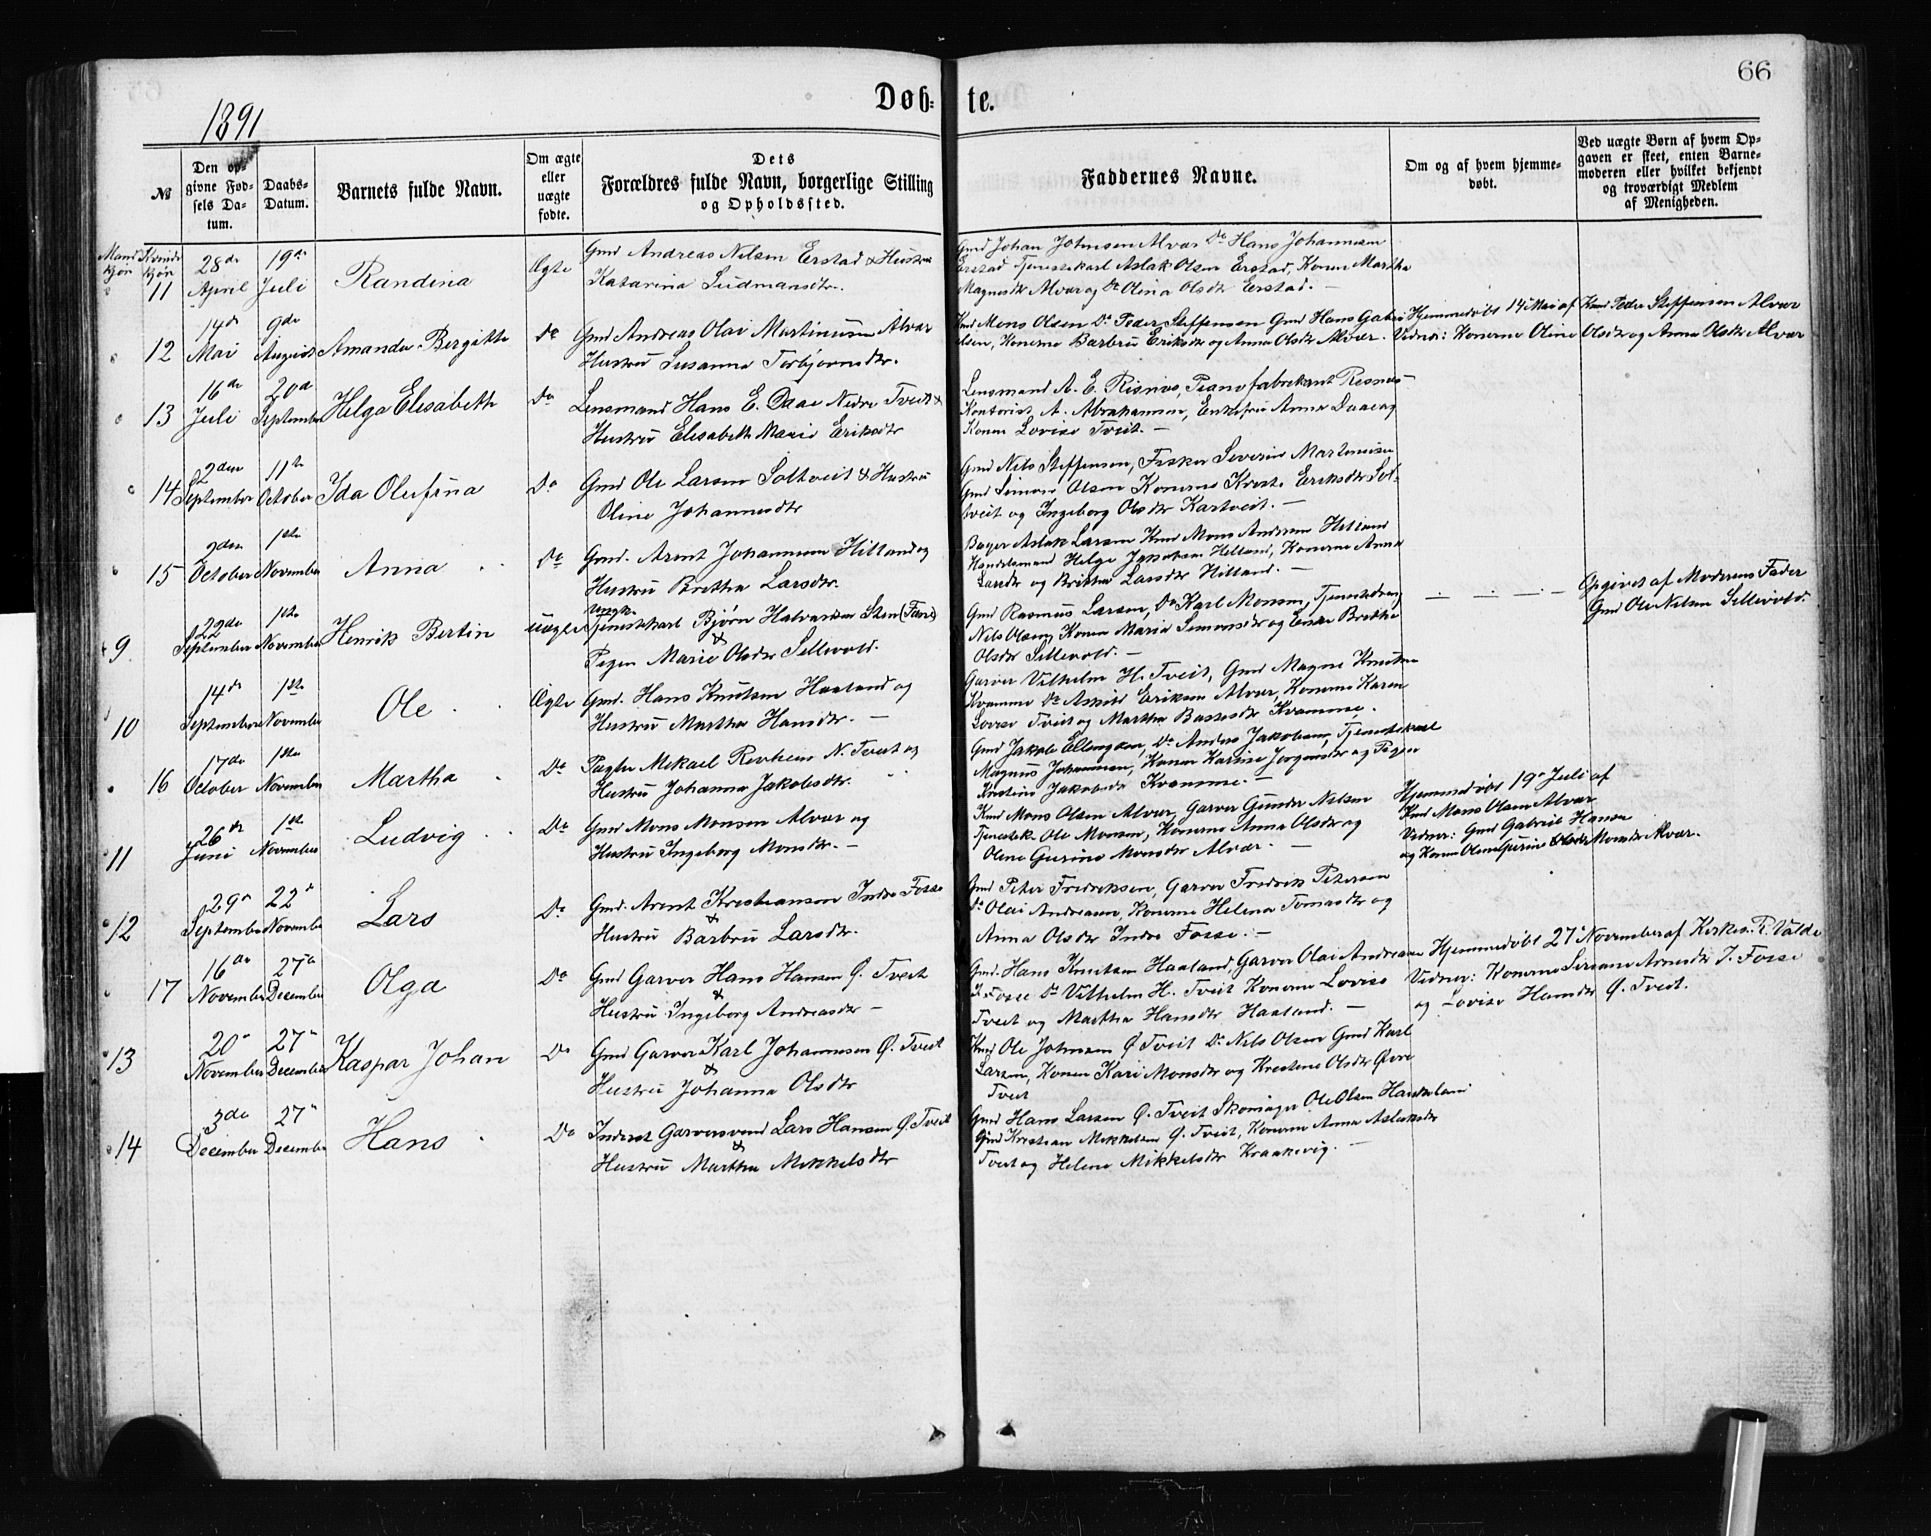 66
Døb= te.
1891
№
Den op-
givne Fød-
sels Da-
tum.
Daabs-
Datum.
Barnets fulde Navn.
Om ægte
eller
uægte
fødte.
Dets
Forældres fulde Navn, borgerlige Stilling
og Opholdssted.
Faddernes Navne.
Om og af hvem hjemme-
døbt.
Ved uægte Børn af hvem Op-
gaven er skeet, enten Barne-
moderen eller hvilket bekjendt
og troværdigt Medlem
af Menigheden.
Mand Kvinde
kjøn kjøn
11 28de April 19de Juli Randina Ægte
Gmd Andreas Nilsen Erstad & Hustru
Katarina Ludmansdtr.
Gmd Johan Johnsen Alvær Do Hans Johannesen
Erstad Tjenestekarl Aslak Olsen Erstad, Konen Martha
Magnesdtr Alvær og Do Olina Olsdtr Erstad. —
12 14de Mai 9de August Amanda Bergitte Do
Gmd Andreas Olai Martinusen Alvær
Hustru Susanna Torbjørnsdtr.
Kmd Mons Olsen Do Peder Steffensen Gmd Hans Gabri
elsen, Konerne Barbru Eriksdtr og Anna Olsdtr Alvær.
Hjemmedøbt 14 Mai af Kmd Peder Steffensen Alvær
Vidner: Konerne Oline Olsdtr og Anna Olsdtr Alvær
13 16de Juli 20de September Helga Elisabeth Do
Lensmand Hans E. Daae Nedre Tveit &
Hustru Elisabeth Marie Eriksdtr
Lensmand A. E. Risnes, Pianofabrikant Risnes
Kontorist A. Abrahamsen, Enkefru Anna Daae og
Konen Lovise Tveit. —
14 2den September 11te October Ida Olufina Do
Gmd Ole Larsen Soltveit & Hustru
Oline Johannesdtr
Gmd Nils Steffensen, Fisker Severin Martinusen
Gmd Simon Olsen Konerne Kirsti Eriksdtr Sol-
tveit og Ingeborg Olsdtr Kartveit. —
15 2den October 1ste November Anna Do
Gmd. Arent Johannesen Hilland og
Hustru Bretha Larsdtr.
Bager Aslak Larsen Kmd Mons Andersen Hilland
Handelsmand Helge Jakobsen Hilland, Konerne Anna
Larsdtr og Britha Larsdtr Hilland. —
9 22de September 1ste November Henrik Bertin uægte
Ungk.
Tjenestekarl Bjørn Halvorsen Sten (Fane)
&
Pigen Marie Olsdtr Sellevold.
Gmd Rasmus Larsen, Do Karl Monsen, Tjenestedreng
Nils Olsen, Konen Maria Simonsdtr og Enke Bretha
Olsdtr Sellevold. —
Opgivet af Moderens Fader
Gmd Ole Nilsen Sellevold.
10 14de September 1ste November Ole Ægte
Gmd. Hans Knutsen Haaland og
Hustru Martha Hansdtr. —
Garver Vilhelm H. Tveit, Gmd Magne Knutsen
Kvamme Do Eriksen Alvær, Konerne Karen
Lovise Tveit og Martha Kvamme.
16 17de October 1ste November Martha Do
Mekael Revheim N. Tveit og
Hustru Johanna Jakobsdtr.
Gmd Jakob Ellingsen, Do Anders Jakobsen, Tjenestekarl
Magnus Johannesen, Konen Karine Jørgensdtr og Pigen
Kristine Jakobsdtr Kvamme. —
11 26de Juni 1ste November Ludvig Do
Gmd Mons Monsen Alvær og
Hustru Ingeborg Monsdtr. —
Kmd Mons Olsen Alvær, Garver Gunder Nilsen
Tjenestek. Ole Monsen, Konerne Anna Olsdtr og
Olene Gurine Monsdtr Alvær. —
Hjemmedøbt 19de Juli af
Kmd Mons Olsen Alvær
Vidner: Gmd Gabriel Hansen
og Konen Olene Gurine Monsdtr Alvær.
12 29de September 22de November Lars Do
Gmd. Arent Kristiansen Indre Fosse
&
Hustru Barbru Larsdtr.
Gmd Peter Fredriksen, Garver Fredrik Petersen
Do Olai Andreasen, Konerne Helena Tomasdtr og
Anna Olsdtr Indre Fosse. —
17 16de November 27de December Olga Do
Gmd Garver Hans Hansen Ø. Tveit
&
Hustru Ingeborg Andreasdtr —
Gmd. Hans Knutsen Haaland, Garver Olai Andreasen
I. Fosse Do Vilhelm H. Tveit Konerne Lovise
Tveit og Martha Hansdtr Haaland. —
Hjemmedøbt 27de November af Kirkes. R. Valde
Vidner: Konerne Siriane Arnesdtr I. Fosse
og Lovise Hansdtr Ø. Tveit.
13 20de November 27de December Kaspar Johan Do
Gmd Garver Karl Johannesen Ø. Tveit
&
Hustru Johanna Olsdtr
Kmd Ole Johnsen Ø Tveit Do Nils Olsen Gmd Karl
Larsen, Konen Kari Monsdtr og Kristene Olsdtr Øvre
Tveit
14 3de December 27de December Hans Do
Inderst Garversvend Lars Hansen Ø. Tveit
&
Hustru Martha Mikkelsdtr
Gmd Hans Larsen Ø. Tveit Skomager Ole Olsen Haukeland
Gmd Kristian Mikkelsen Ø. Tveit, Konerne Anna Aslaksdtr
Tveit og Helene Mikkelsdtr Kraakevig. —